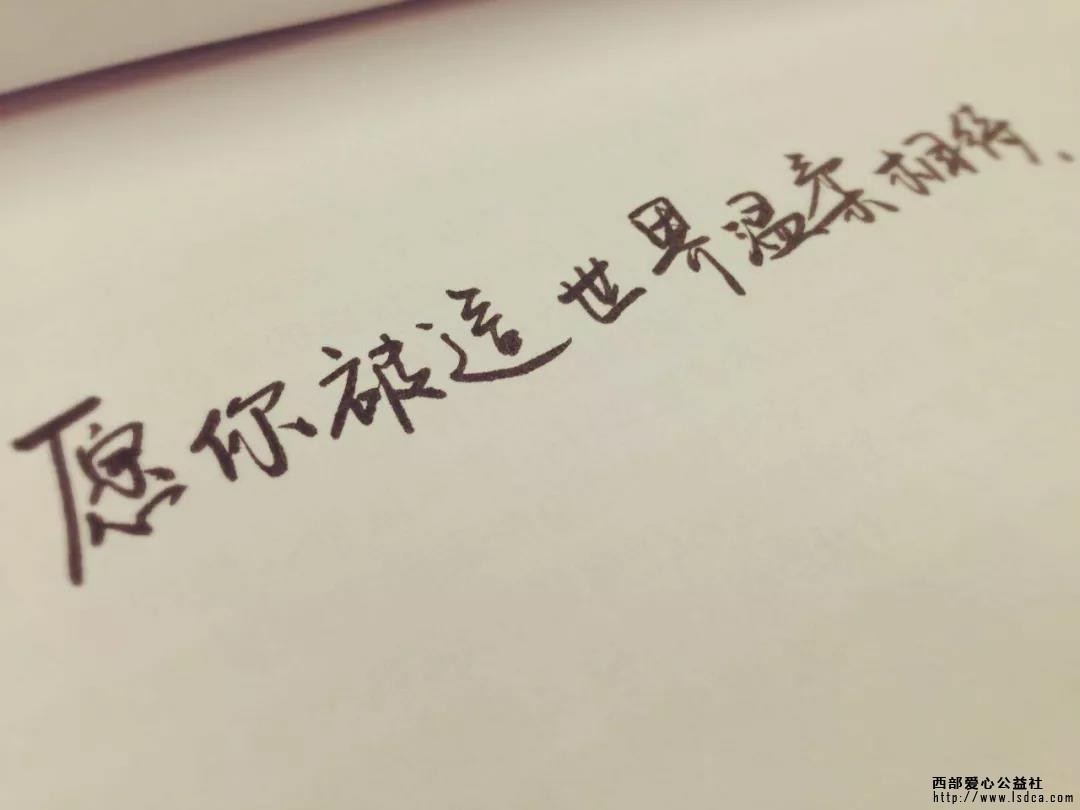 愿你被这世界温柔相待、
西部爱心公益社
http://www.lsdca.com